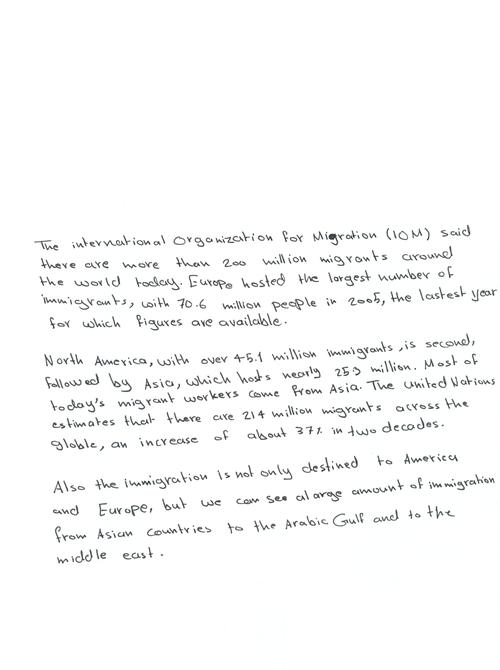 The international Organization for Migration (IOM) said
there are more than 200 million migrants around
the world today. Europe hosted the largest number of
immigrants, with 70.6 million people in 2005, the lastest year
for which figures are available.
North America, with over 45.1 million immigrants, is second,
followed by Asia, which hosts nearly 25.3 million. Most of
today's migrant workers come from Asia. The United Nations
estimates that there are 214 million migrants across the
globle, an increase of about 37% in two decades.
Also the immigration is not only destined to America
and Europe, but we can see a large amount of immigration
from Asian countries to the Arabic Gulf and to the
middle east.